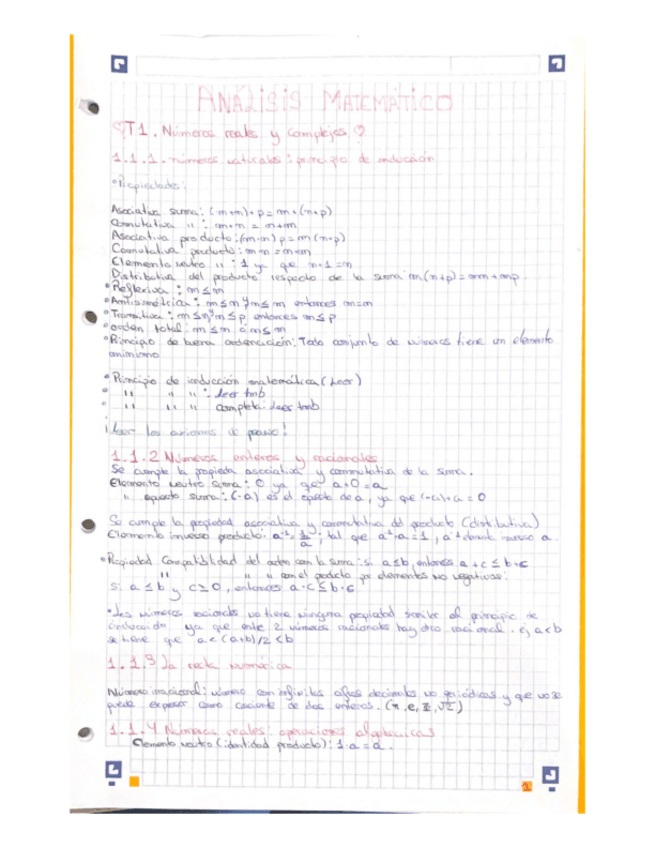 ANÁLISIS MATEMÁTICO
♡T1. Números reales y Complejos ♡
1.1.1. números naturales: principio de inducción
•Propiedades:
Asociativa suma: (m+n)+p = m+(n+p)
Conmutativa " : m+n = n+m
Asociativa producto: (m·n) p = m (n·p)
Conmutativa producto: m·n = n·m
Elemento neutro " : 1 ya que n·1 = n
Distributiva del producto respecto de la suma: m(n+p) = mn + mp.
•Reflexiva: m ≤ m
•Antisimétrica: m ≤ n y n ≤ m entonces m=n
•Transitiva: m ≤ n y n ≤ p entonces m ≤ p
•orden total: m ≤ n ó n ≤ m
•Principio de buena ordenación: Todo conjunto de números tiene un elemento
mínimo
•Principio de inducción matemática (Leer)
• " " " : leer tmb
• " " " completa: leer tmb
¡Leer los axiomas de peano!
1.1.2 Números enteros y racionales
Se cumple la propieda asociativa y conmutativa de la suma.
Elemento neutro suma: 0 ya que a+0=a
" opuesto suma: (-a) es el opuesto de a, ya que (-a)+a = 0
Se cumple la propiedad asociativa y conmutativa del producto (distributiva)
Elemento inverso producto: a⁻¹ = 1/a; tal que a⁻¹·a = 1, a⁻¹ inverso a.
•Propiedad Compatibilidad del orden con la suma: si a≤b, entonces a+c ≤ b+c
" " " con el producto por elementos no negativos:
si a ≤ b y c ≥ 0, entonces a·c ≤ b·c
•Los números racionales no tiene ninguna propiedad similar al principio de
inducción ya que entre 2 números racionales hay otro racional. a<b
se tiene que a < (a+b)/2 < b
1.1.3 la recta numérica
Número irracional: número con infinitas cifras decimales no periódicas y que no se
puede expresar como cociente de dos enteros. (π, e, √2)
1.1.4 Números reales: operaciones algebraicas
Elemento neutro (identidad producto): 1·a = a.
1